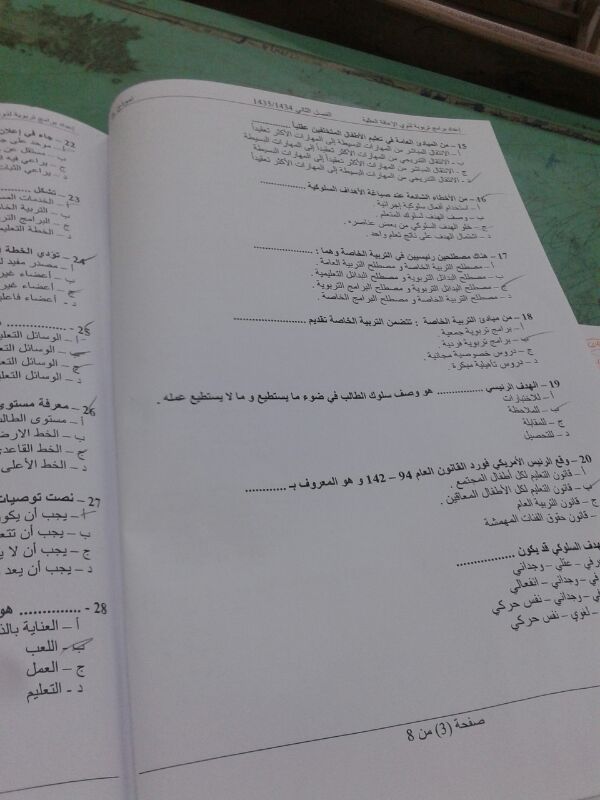 إعداد برامج تربوية لذوي الإعاقة العقلية
الفصل الثاني 1435/1434
15 – من المبادئ العامة في تعليم الأطفال المتخلفين عقلياً ..........
أ – الانتقال المباشر من المهارات البسيطة إلى المهارات الأكثر تعقيداً
ب – الانتقال التدريجي من المهارات الأكثر تعقيداً إلى المهارات البسيطة
ج – الانتقال المباشر من المهارات الأكثر تعقيداً إلى المهارات البسيطة
د – الانتقال التدريجي من المهارات البسيطة إلى المهارات الأكثر تعقيداً
16 – من الأخطاء الشائعة عند صياغة الأهداف السلوكية ..................
أ – استخدام أفعال سلوكية إجرائية .
ب – وصف الهدف لسلوك المتعلم .
ج – خلو الهدف السلوكي من بعض عناصره .
د – اشتمال الهدف على ناتج تعلم واحد .
17 – هناك مصطلحين رئيسيين في التربية الخاصة وهما : ..................
أ – مصطلح التربية الخاصة و مصطلح التربية العامة .
ب – مصطلح البدائل التربوية و مصطلح البدائل التعليمية .
ج – مصطلح البدائل التربوية و مصطلح البرامج التربوية .
د – مصطلح التربية الخاصة و مصطلح البرامج الخاصة .
18 – من مبادئ التربية الخاصة : تتضمن التربية الخاصة تقديم ..................
أ – برامج تربوية جمعية .
ب – برامج تربوية فردية .
ج – دروس خصوصية مجانية .
د – دروس تأهيلية مبكرة .
19 – الهدف الرئيسي ............ هو وصف سلوك الطالب في ضوء ما يستطيع و ما لا يستطيع عمله .
أ – للاختبارات
ب – للملاحظة
ج – للمقابلة
د – للتحصيل
20 – وقع الرئيس الأمريكي فورد القانون العام 94 – 142 و هو المعروف بـ ..........
أ – قانون التعليم لكل أطفال المجتمع .
ب – قانون التعليم لكل الأطفال المعاقين .
ج – قانون التربية العام
– قانون حقوق الفئات المهمشة
هدف السلوكي قد يكون ................
– عقلي – وجداني
– وجداني – انفعالي
– وجداني – نفس حركي
– لغوي – نفس حركي
صفحة (3) من 8
إعداد برامج تربوية
22 – جاء في إعلان
23 – تشكل
أ – الخدمات
ب – التربية
ج – البرامج
د – الخطة
24 – تؤدي الخطة
أ – مصدر مفيد
ب – أعضاء غير
ج – أعضاء غير
د – أعضاء
25 – ..........
أ – الوسائل
ب – الوسائل
ج – الوسائل
د – الوسائل
26 – معرفة مستوى
أ – مستوى
ب – الخط
ج – الخط
د – الخط الأعلى
27 – نصت توصيات
أ – يجب أن يكون
ب – يجب أن
ج – يجب أن لا
د – يجب أن يعد
28 – .............. هو
أ – العناية
ب – اللعب
ج – العمل
د – التعليم